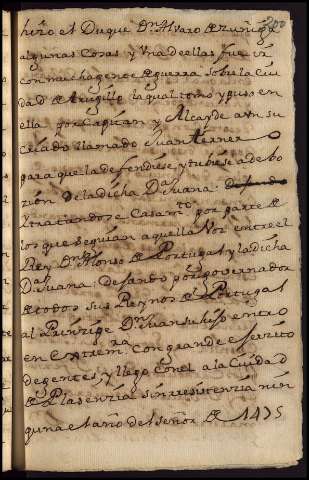 hizo el Duque Dn. Alvaro de Zuñiga
algunas Cosas y Vna de ellas fue ir
con mucha gente de guerra sobre la Ciu
dad de trugillo la qual tomo y puso en
ella por Capitan y Alcayde a vn su
Criado llamado Juan terner o
para que la defendiese y tubiese a debo
zion de la dicha Da. Juana:
Xtratandose Casamto. por parte de
los que seguian aquella Voz entre el
Rey Dn. Alonso de Portugal y la dicha
Da. Juana: dejando por gouernador
de todos sus Reynos de Portugal
al Prinzipe Dn. Juan su hijo entro
en Extremra. Con grande esercito
de gentes y llego Con el a la Ciudad
de Plasenzia sin resistenzia nin
guna el año del señor de 1475